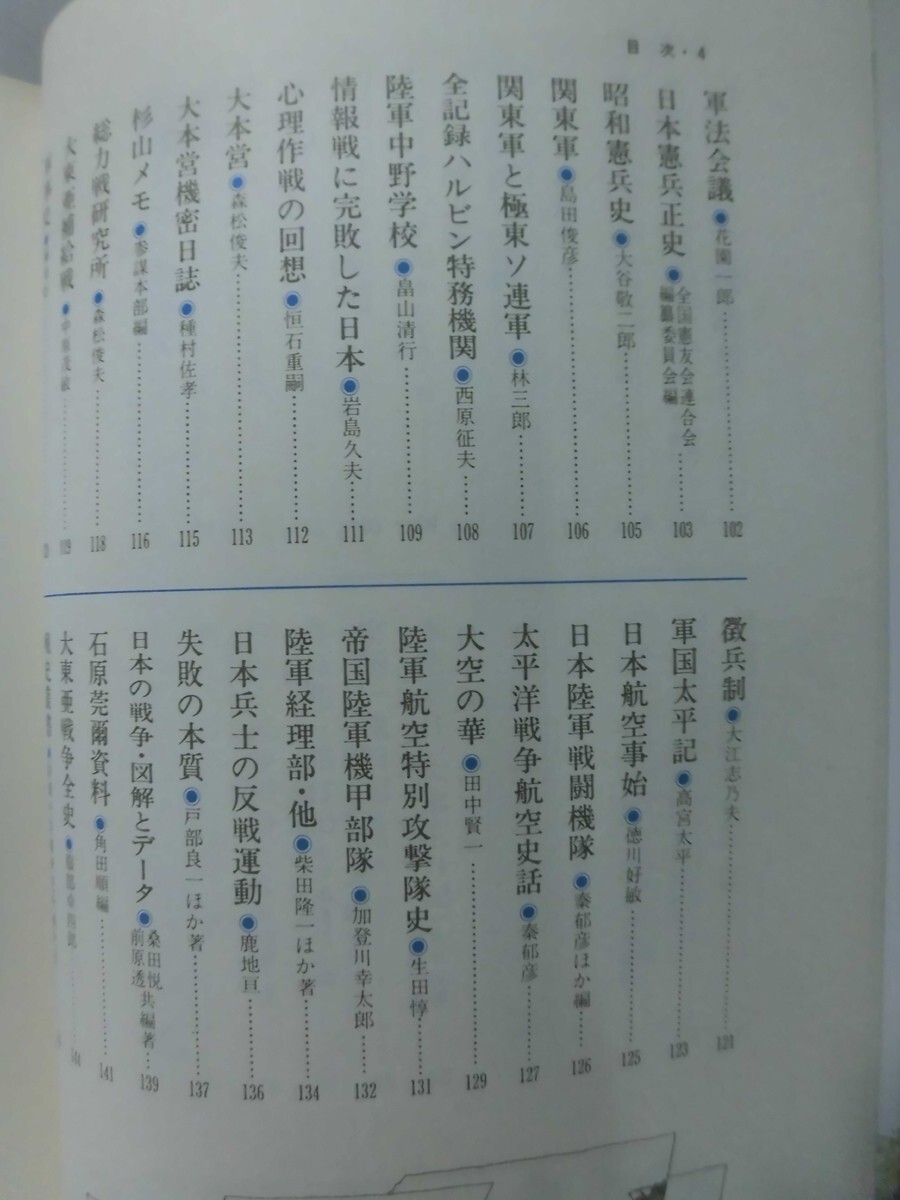 目次・4
軍法会議●花園一郎………102
日本憲兵正史●全国憲友会連合会編纂委員会編……103
昭和憲兵史●大谷敬二郎………105
関東軍●島田俊彦………106
関東軍と極東ソ連軍●林三郎………107
全記録ハルビン特務機関●西原征夫……108
陸軍中野学校●畠山清行………109
情報戦に完敗した日本●岩島久夫……111
心理作戦の回想●恒石重嗣………112
大本営●森松俊夫………113
大本営機密日誌●種村佐孝………115
杉山メモ●参謀本部編………116
総力戦研究所●森松俊夫………118
大東亜補給戦●中原茂敏………119
徴兵制●大江志乃夫………121
軍国太平記●高宮太平………123
日本航空事始●徳川好敏………125
日本陸軍戦闘機隊●秦郁彦ほか編……126
太平洋戦争航空史話●秦郁彦………127
大空の華●田中賢一………129
陸軍航空特別攻撃隊史●生田惇……131
帝国陸軍機甲部隊●加登川幸太郎……132
陸軍経理部・他●柴田隆一ほか著……134
日本兵士の反戦運動●鹿地亘………136
失敗の本質●戸部良一ほか著………137
日本の戦争・図解とデータ●桑田悦 前原透 共編著……139
石原莞爾資料●角田順編………141
大東亜戦争全史●服部卓四郎………144